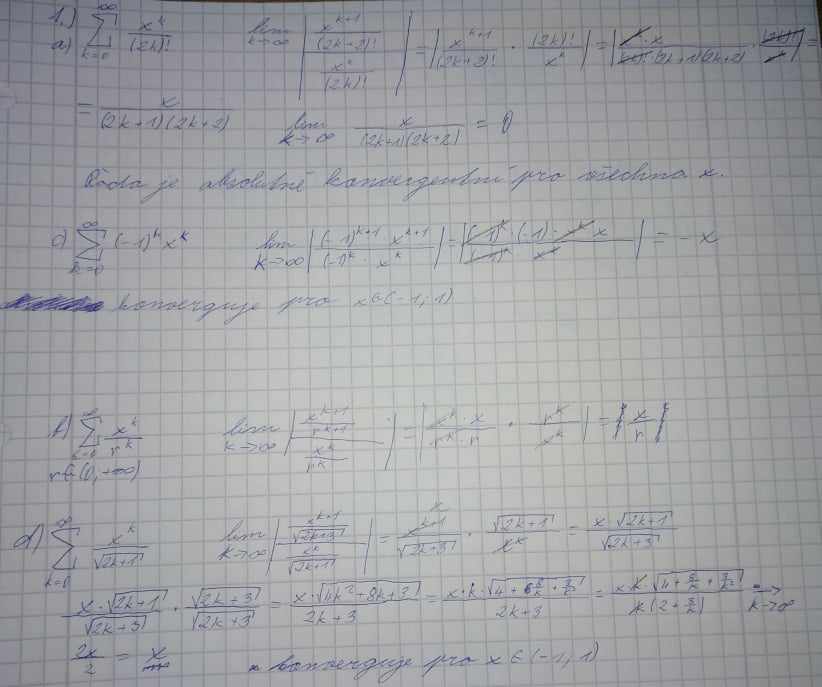 1.)
a) \sum_{k=0}^{\infty} \frac{x^k}{(2k)!} \lim_{k→∞} \left| \frac{\frac{x^{k+1}}{(2k+2)!}}{\frac{x^k}{(2k)!}} \right| = \left| \frac{x^{k+1}}{(2k+2)!} \cdot \frac{(2k)!}{x^k} \right| = \left| \frac{x^k \cdot x}{(2k)! \cdot (2k+1)(2k+2)} \cdot \frac{(2k)!}{x^k} \right| =
= \frac{x}{(2k+1)(2k+2)} \lim_{k→∞} \frac{x}{(2k+1)(2k+2)} = 0
Řada je absolutně konvergentní pro všechna x.
c) \sum_{k=0}^{\infty} (-1)^k x^k \lim_{k→∞} \left| \frac{(-1)^{k+1} \cdot x^{k+1}}{(-1)^k \cdot x^k} \right| = \left| \frac{(-1)^k \cdot (-1) \cdot x^k \cdot x}{(-1)^k \cdot x^k} \right| = -x
konverguje pro x∈(-1;1)
b) \sum_{k=0}^{\infty} \frac{x^k}{r^k} \lim_{k→∞} \left| \frac{\frac{x^{k+1}}{r^{k+1}}}{\frac{x^k}{r^k}} \right| = \left| \frac{x^k \cdot x}{r^k \cdot r} \cdot \frac{r^k}{x^k} \right| = \left| \frac{x}{r} \right|
r∈(0,+∞)
d) \sum_{k=0}^{\infty} \frac{x^k}{\sqrt{2k+1}} \lim_{k→∞} \left| \frac{\frac{x^{k+1}}{\sqrt{2k+3}}}{\frac{x^k}{\sqrt{2k+1}}} \right| = \frac{x^{k+1}}{\sqrt{2k+3}} \cdot \frac{\sqrt{2k+1}}{x^k} = \frac{x \cdot \sqrt{2k+1}}{\sqrt{2k+3}}
\frac{x \cdot \sqrt{2k+1}}{\sqrt{2k+3}} \cdot \frac{\sqrt{2k+3}}{\sqrt{2k+3}} = \frac{x \cdot \sqrt{4k^2+8k+3}}{2k+3} = \frac{x \cdot k \cdot \sqrt{4+\frac{8}{k}+\frac{3}{k^2}}}{2k+3} = \frac{x \cdot k \cdot \sqrt{4+\frac{8}{k}+\frac{3}{k^2}}}{k(2+\frac{3}{k})} \xrightarrow[k→∞]{}
\frac{2x}{2} = x konverguje pro x∈(-1;1)